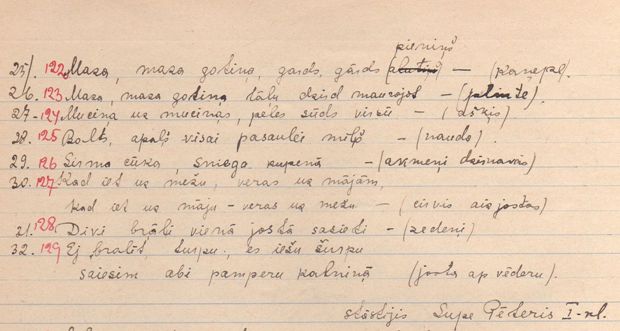 pieniņš
25/. 122. Maza, maza gotiņa, gards, gards (alutiņš) — (kaņepe).
26. 123 Maza, maza gotiņa tālu dzird maurojot — (plinte).
27. 124 Muciņa uz muciņas, peles sūds virsū — (ašķis)
28. 125 Balts, apaļš visai pasaulei mīļš — (nauda).
29. 126 Sirma cūka, sniega kupenā — (akmeņi dzirnavās)
30. 127 Kad iet uz mežu, veras uz mājām,
kad iet uz māju - veras uz mežu — (cirvis aiz jostas)
31. 128. Divi brāļi vienā jostā sasieti - (zedeņi)
32. 129 Ej bralīt turpu, es iešu šurpu
saiesim abi pamperu kalniņā (josta ap vēderu).
stāstījis Supe Pēteris I-nl.